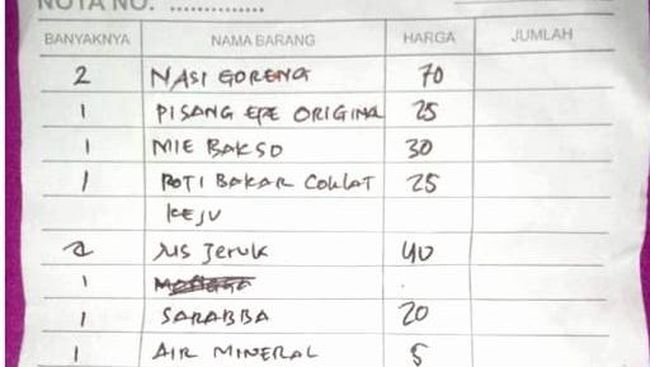 NOTA NO. ..............
BANYAKNYA NAMA BARANG HARGA JUMLAH
2 NASI GORENG 70
1 PISANG EPE ORIGINAL 25
1 MIE BAKSO 30
1 ROTI BAKAR COKLAT 25
KEJU
2 Jus Jeruk 40
1
1 SARABBA 20
1 AIR MINERAL 5